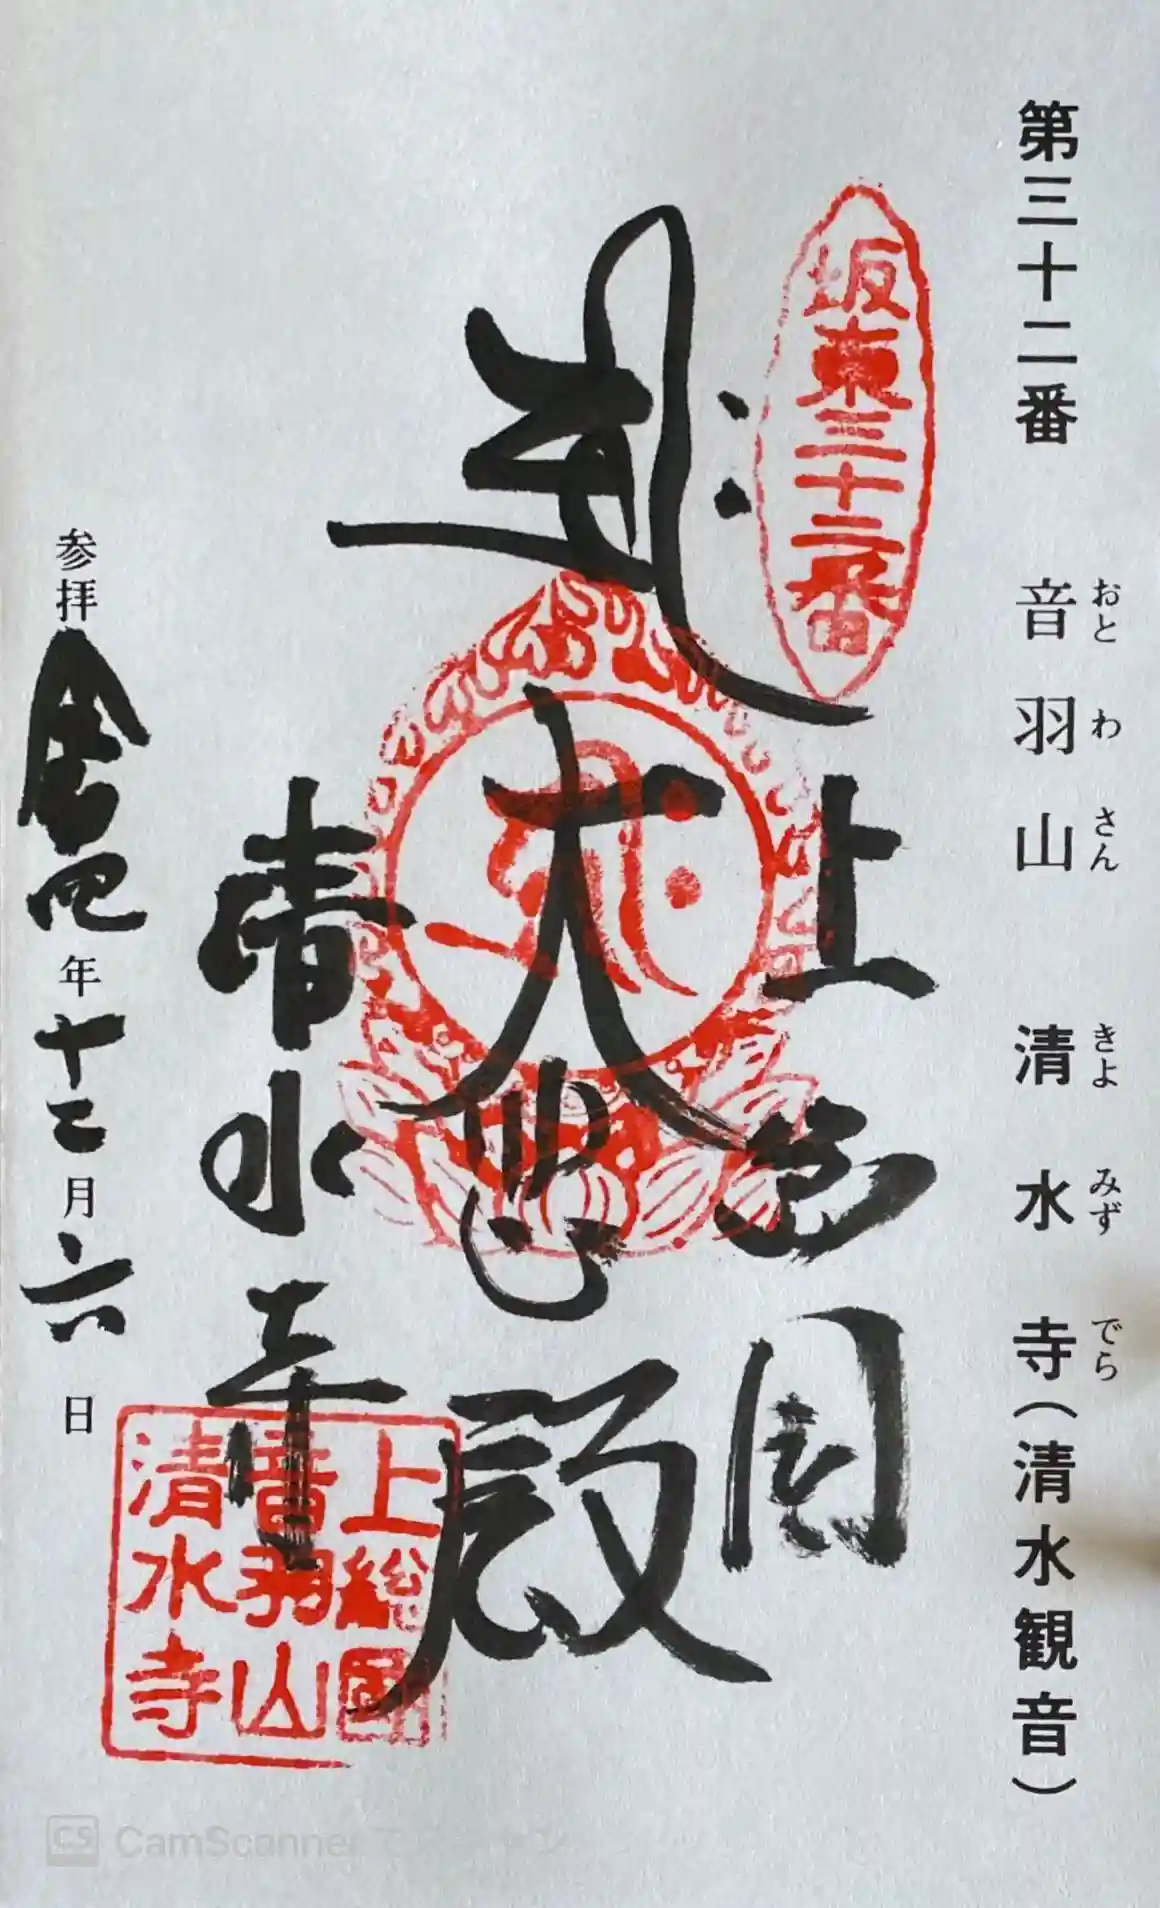 第三十二番 音羽山 清水寺(清水観音)
おとわさん きよみずでら
坂東三十二番
上総国
大悲殿
清水寺
上総國
音羽山
清水寺
参拝 令和四年十二月六日
CS CamScanner